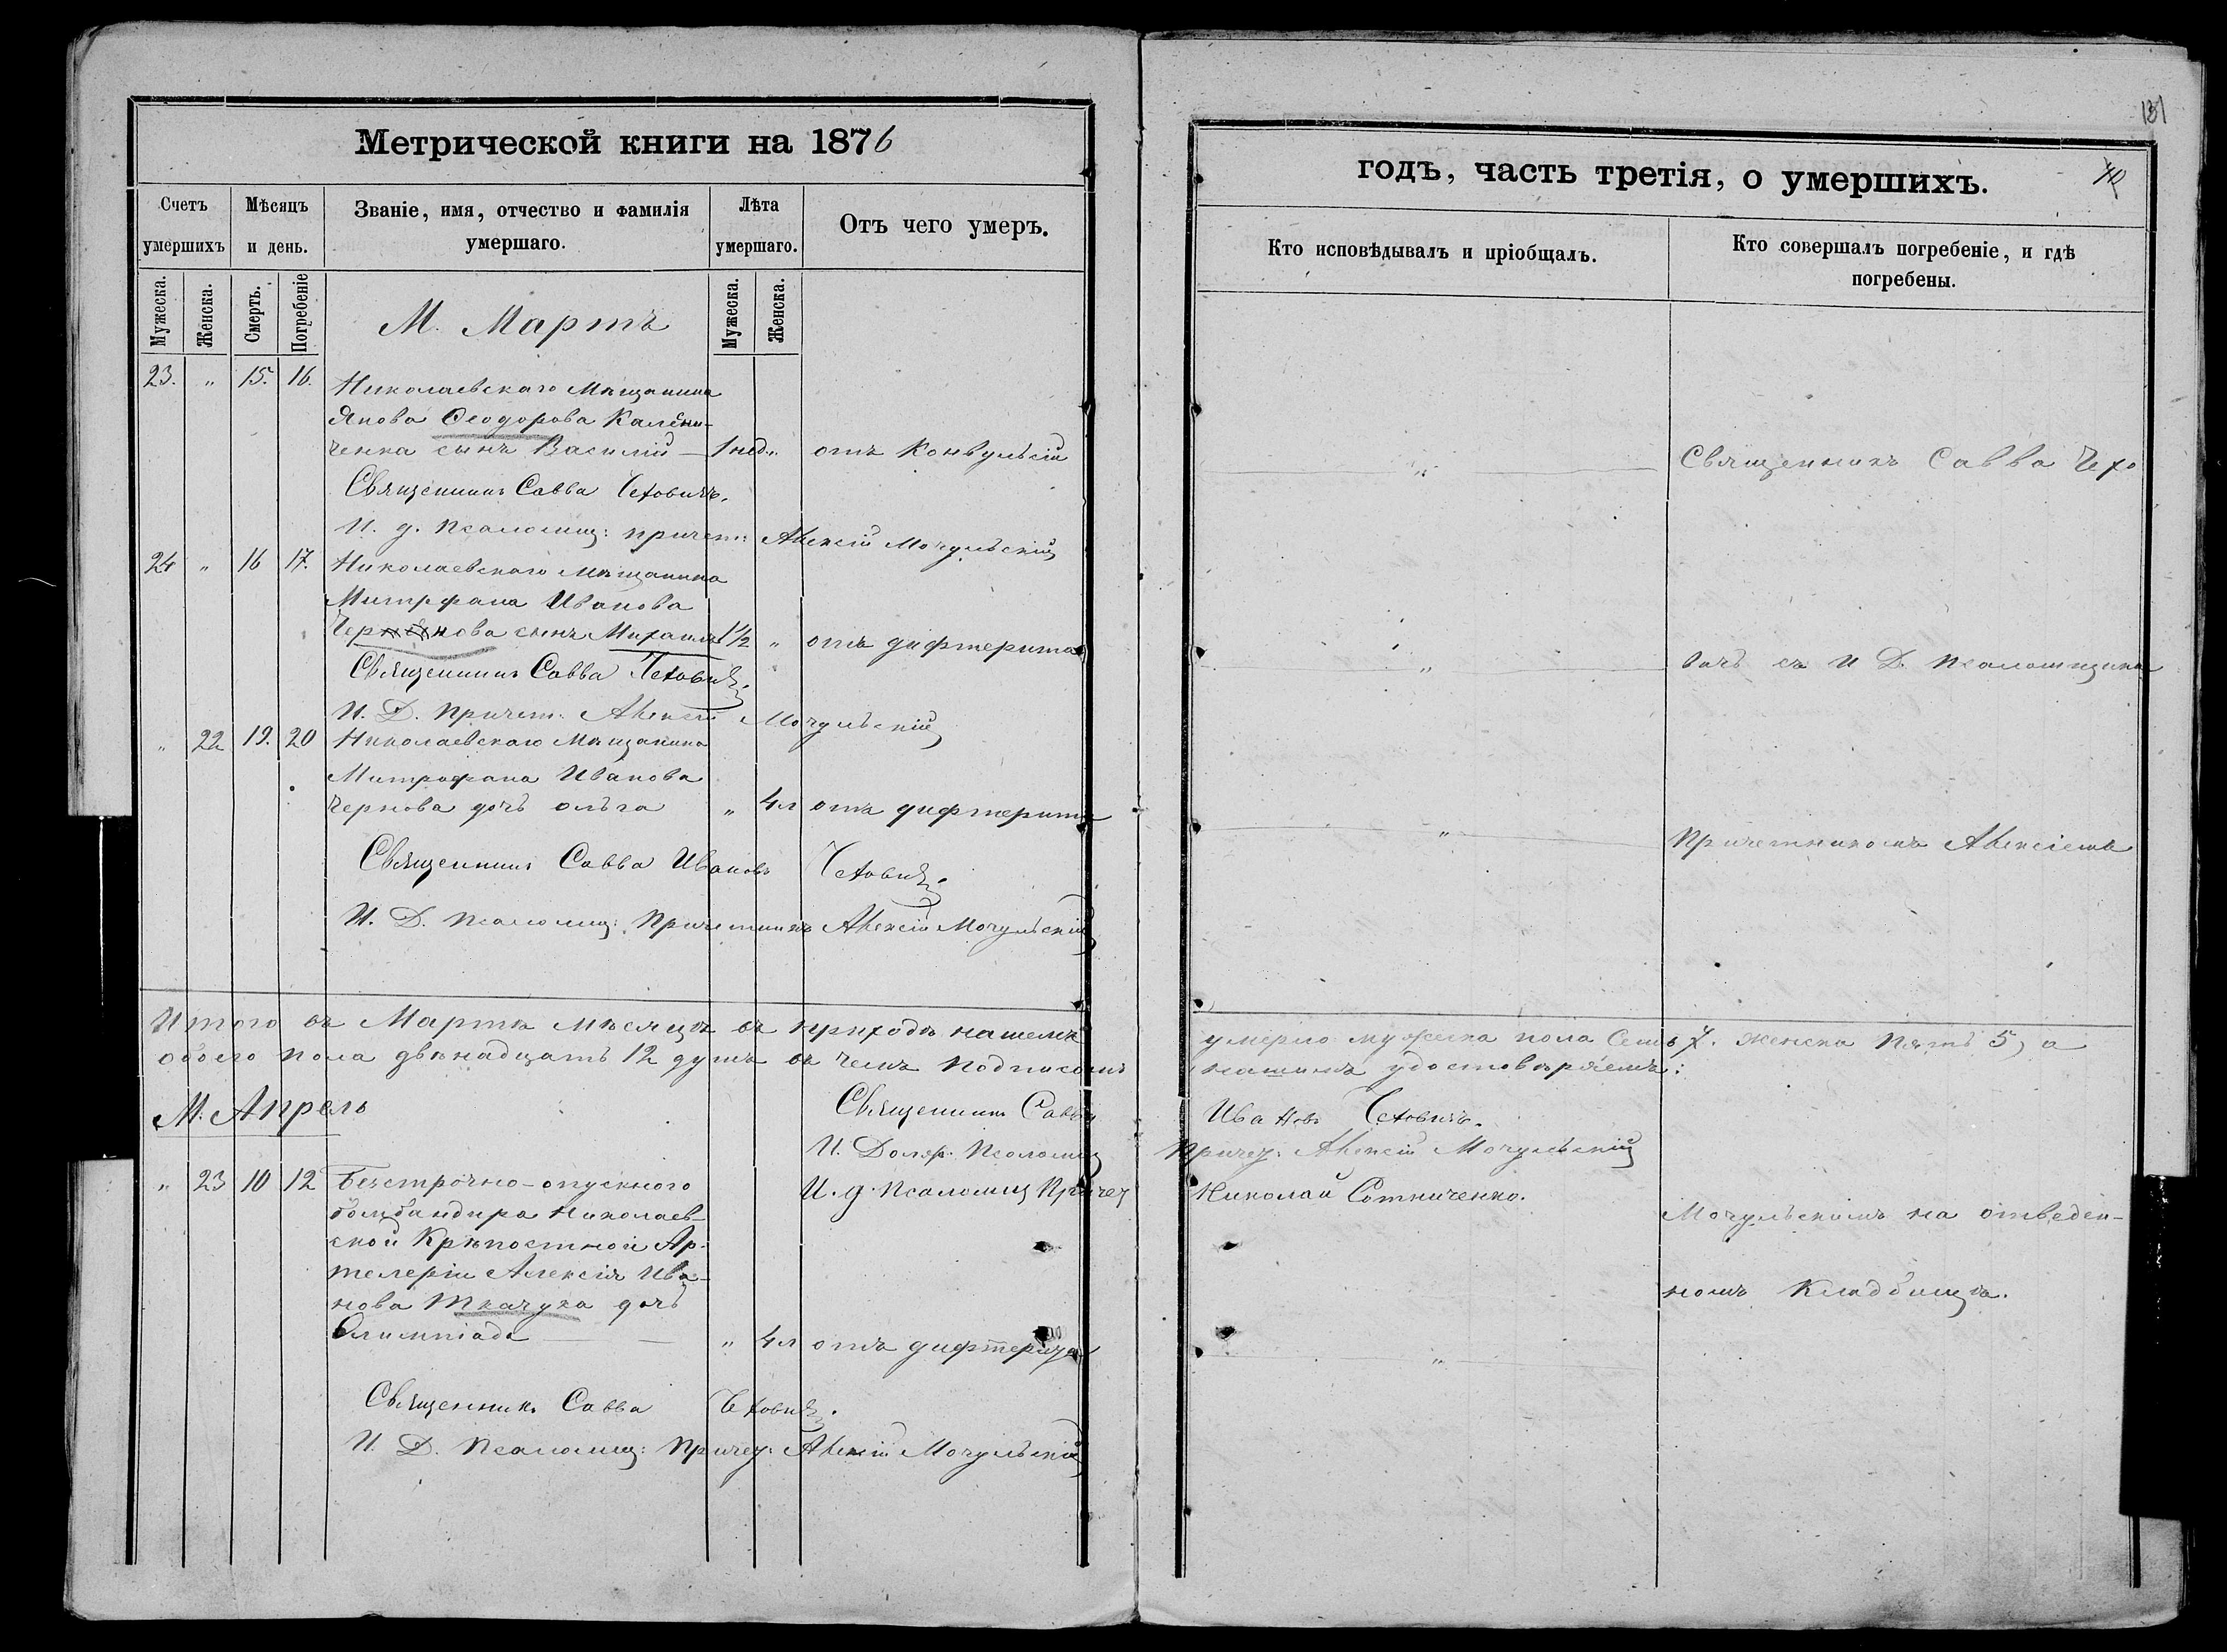 Метрической книги на 1876
Счетъ умершихъ
Мѣсяцъ и день.
Званіе, имя, отчество и фамилія умершаго.
Лѣта умершаго.
Отъ чего умеръ.
Мужеска.
Женска.
Смерть.
Погребеніе
Мужеска.
Женска.
М. Мартъ
23. " 15. 16. Николаевскаго Мѣщанина
Якова Ѳеодорова Калени-
ченка сынъ Василій — 1 нед. " отъ Конвульсій
Священникъ Савва Чеховичъ.
И. д. псаломщ: причет: Алексій Мочульскій
24 " 16 17. Николаевскаго мѣщанина
Митрфана Иванова
Чернова сынъ Михаилъ 1½ " отъ дифтерита
Священникъ Савва Чеховичъ.
И. Д. Причет: Алексій Мочульскій
" 22 19. 20 Николаевскаго Мѣщанина
Митрофана Иванова
Чернова дочь ольга " 4 л отъ дифтерита
Священникъ Савва Ивановъ Чеховичъ.
И. Д. Псаломщ: Причетникъ Алексій Мочульскій
Итого въ Мартѣ мѣсяцѣ въ приходѣ нашемъ
обоего пола двѣнадцать 12 душъ въ чемъ подписомъ
М. Апрель
Священникъ Савва
И. Должн. Псаломщ
" 23 10 12 Безсрочно-опускного
И. д. Псаломщ Причет
бомбандира Николаев-
ской Крѣпостной Ар-
телеріи Алексія Ива-
нова Ткачука дочь
Олимпіада — — " 4 л отъ дифтерита
Священникъ Савва Чеховичъ.
И. Д. Псаломщ: Причет: Алексій Мочульскій
131
годъ, часть третія, о умершихъ.
Кто исповѣдывалъ и пріобщалъ.
Кто совершалъ погребеніе, и гдѣ
погребены.
" Священникъ Савва Чехо
" вичъ съ И Д. Псаломщика
" Причетникомъ Алексіемъ
умерло мужеска пола Семь 7. женска Пять 5, а
нашимъ удостовѣряемъ:
Ивановъ Чеховичъ.
Причет: Алексій Мочульскій
Николай Сотниченко.
Мочульскимъ на отведен-
номъ Кладбищѣ.
"